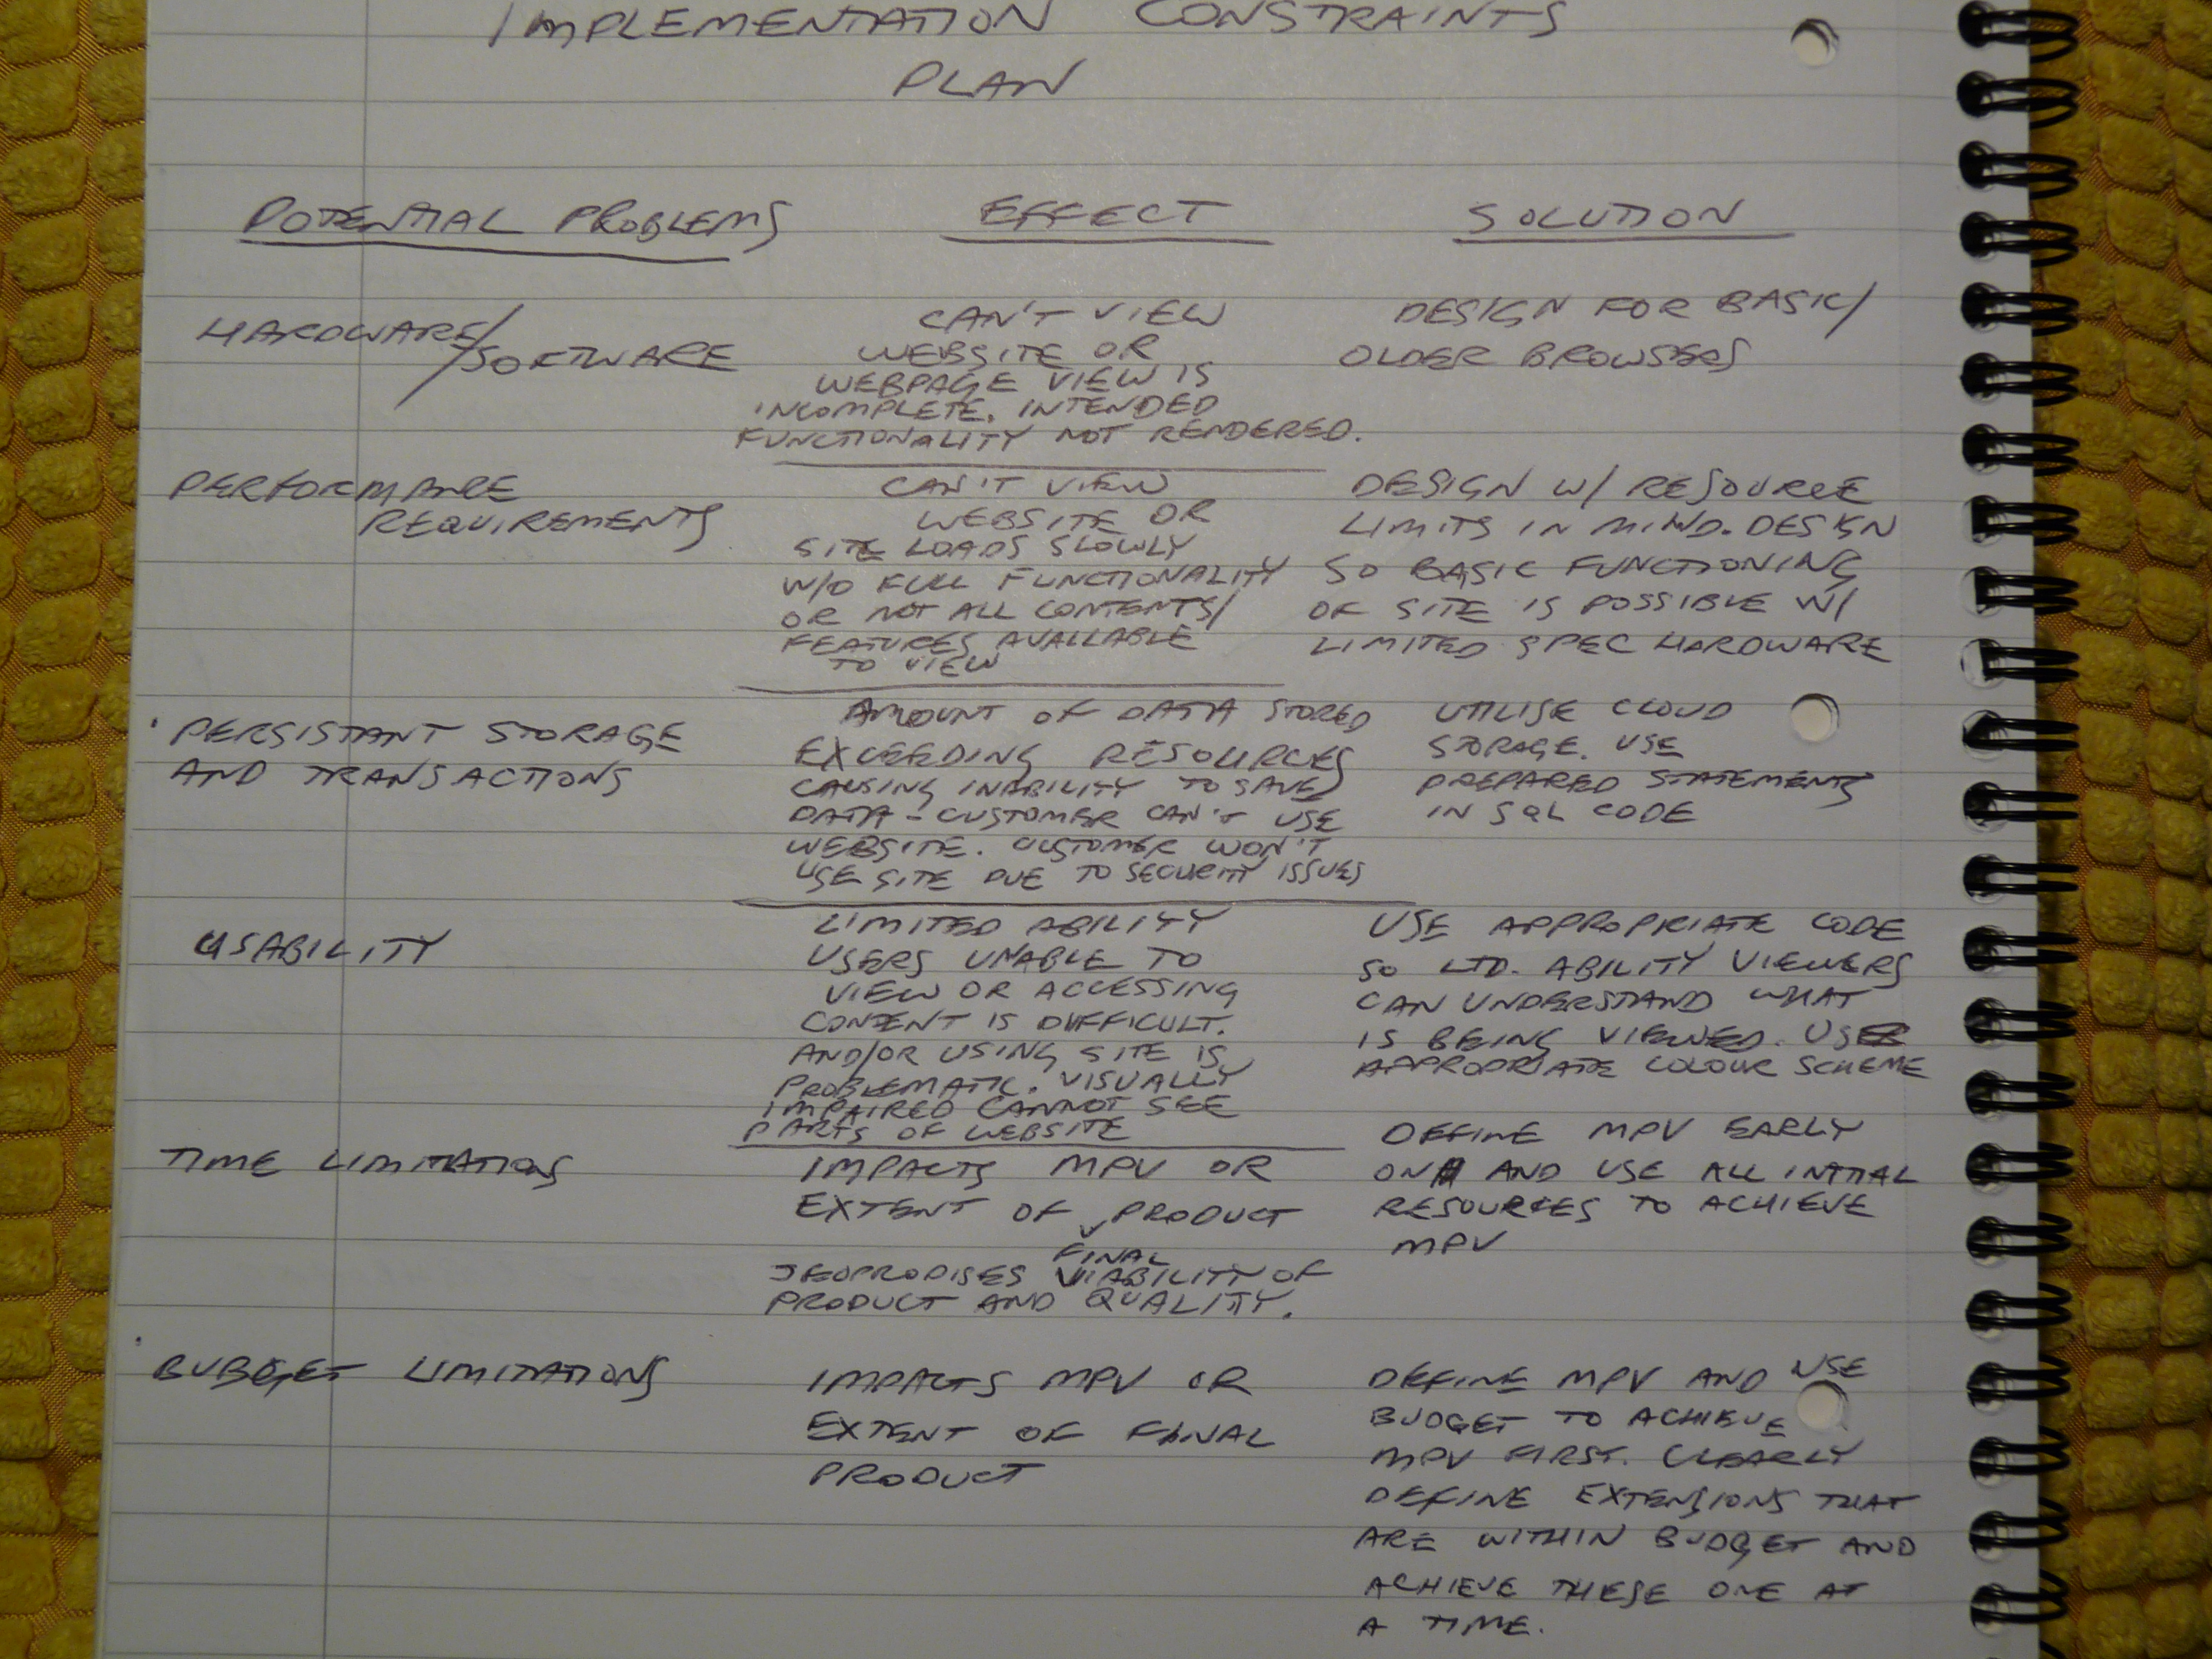 IMPLEMENTATION CONSTRAINTS
PLAN
POTENTIAL PROBLEMS
EFFECT
SOLUTION
HARDWARE/
/SOFTWARE
CAN'T VIEW
WEBSITE OR
WEBPAGE VIEW IS
INCOMPLETE. INTENDED
FUNCTIONALITY NOT RENDERED.
DESIGN FOR BASIC/
OLDER BROWSERS
PERFORMANCE
REQUIREMENTS
CAN'T VIEW
WEBSITE OR
SITE LOADS SLOWLY
W/O FULL FUNCTIONALITY
OR NOT ALL CONTENTS/
FEATURES AVAILABLE
TO VIEW
DESIGN W/ RESOURCE
LIMITS IN MIND. DESIGN
SO BASIC FUNCTIONING
OF SITE IS POSSIBLE W/
LIMITED SPEC HARDWARE
PERSISTANT STORAGE
AND TRANSACTIONS
AMOUNT OF DATA STORED
EXCEEDING RESOURCES
CAUSING INABILITY TO SAVE
DATA - CUSTOMER CAN'T USE
WEBSITE. CUSTOMER WON'T
USE SITE DUE TO SECURITY ISSUES
UTILISE CLOUD
STORAGE. USE
PREPARED STATEMENTS
IN SQL CODE
USABILITY
LIMITED ABILITY
USERS UNABLE TO
VIEW OR ACCESSING
CONTENT IS DIFFICULT.
AND/OR USING SITE IS
PROBLEMATIC. VISUALLY
IMPAIRED CANNOT SEE
PARTS OF WEBSITE
USE APPROPRIATE CODE
SO LTD. ABILITY VIEWERS
CAN UNDERSTAND WHAT
IS BEING VIEWED. USE
APPROPRIATE COLOUR SCHEME
TIME LIMITATIONS
IMPACTS MPV OR
EXTENT OF PRODUCT
FINAL
JEOPRODISES VIABILITY OF
PRODUCT AND QUALITY.
DEFINE MPV EARLY
ON AND USE ALL INITIAL
RESOURCES TO ACHIEVE
MPV
BUDGET LIMITATIONS
IMPACTS MPV OR
EXTENT OF FINAL
PRODUCT
DEFINE MPV AND USE
BUDGET TO ACHIEVE
MPV FIRST. CLEARLY
DEFINE EXTENSIONS THAT
ARE WITHIN BUDGET AND
ACHIEVE THESE ONE AT
A TIME.